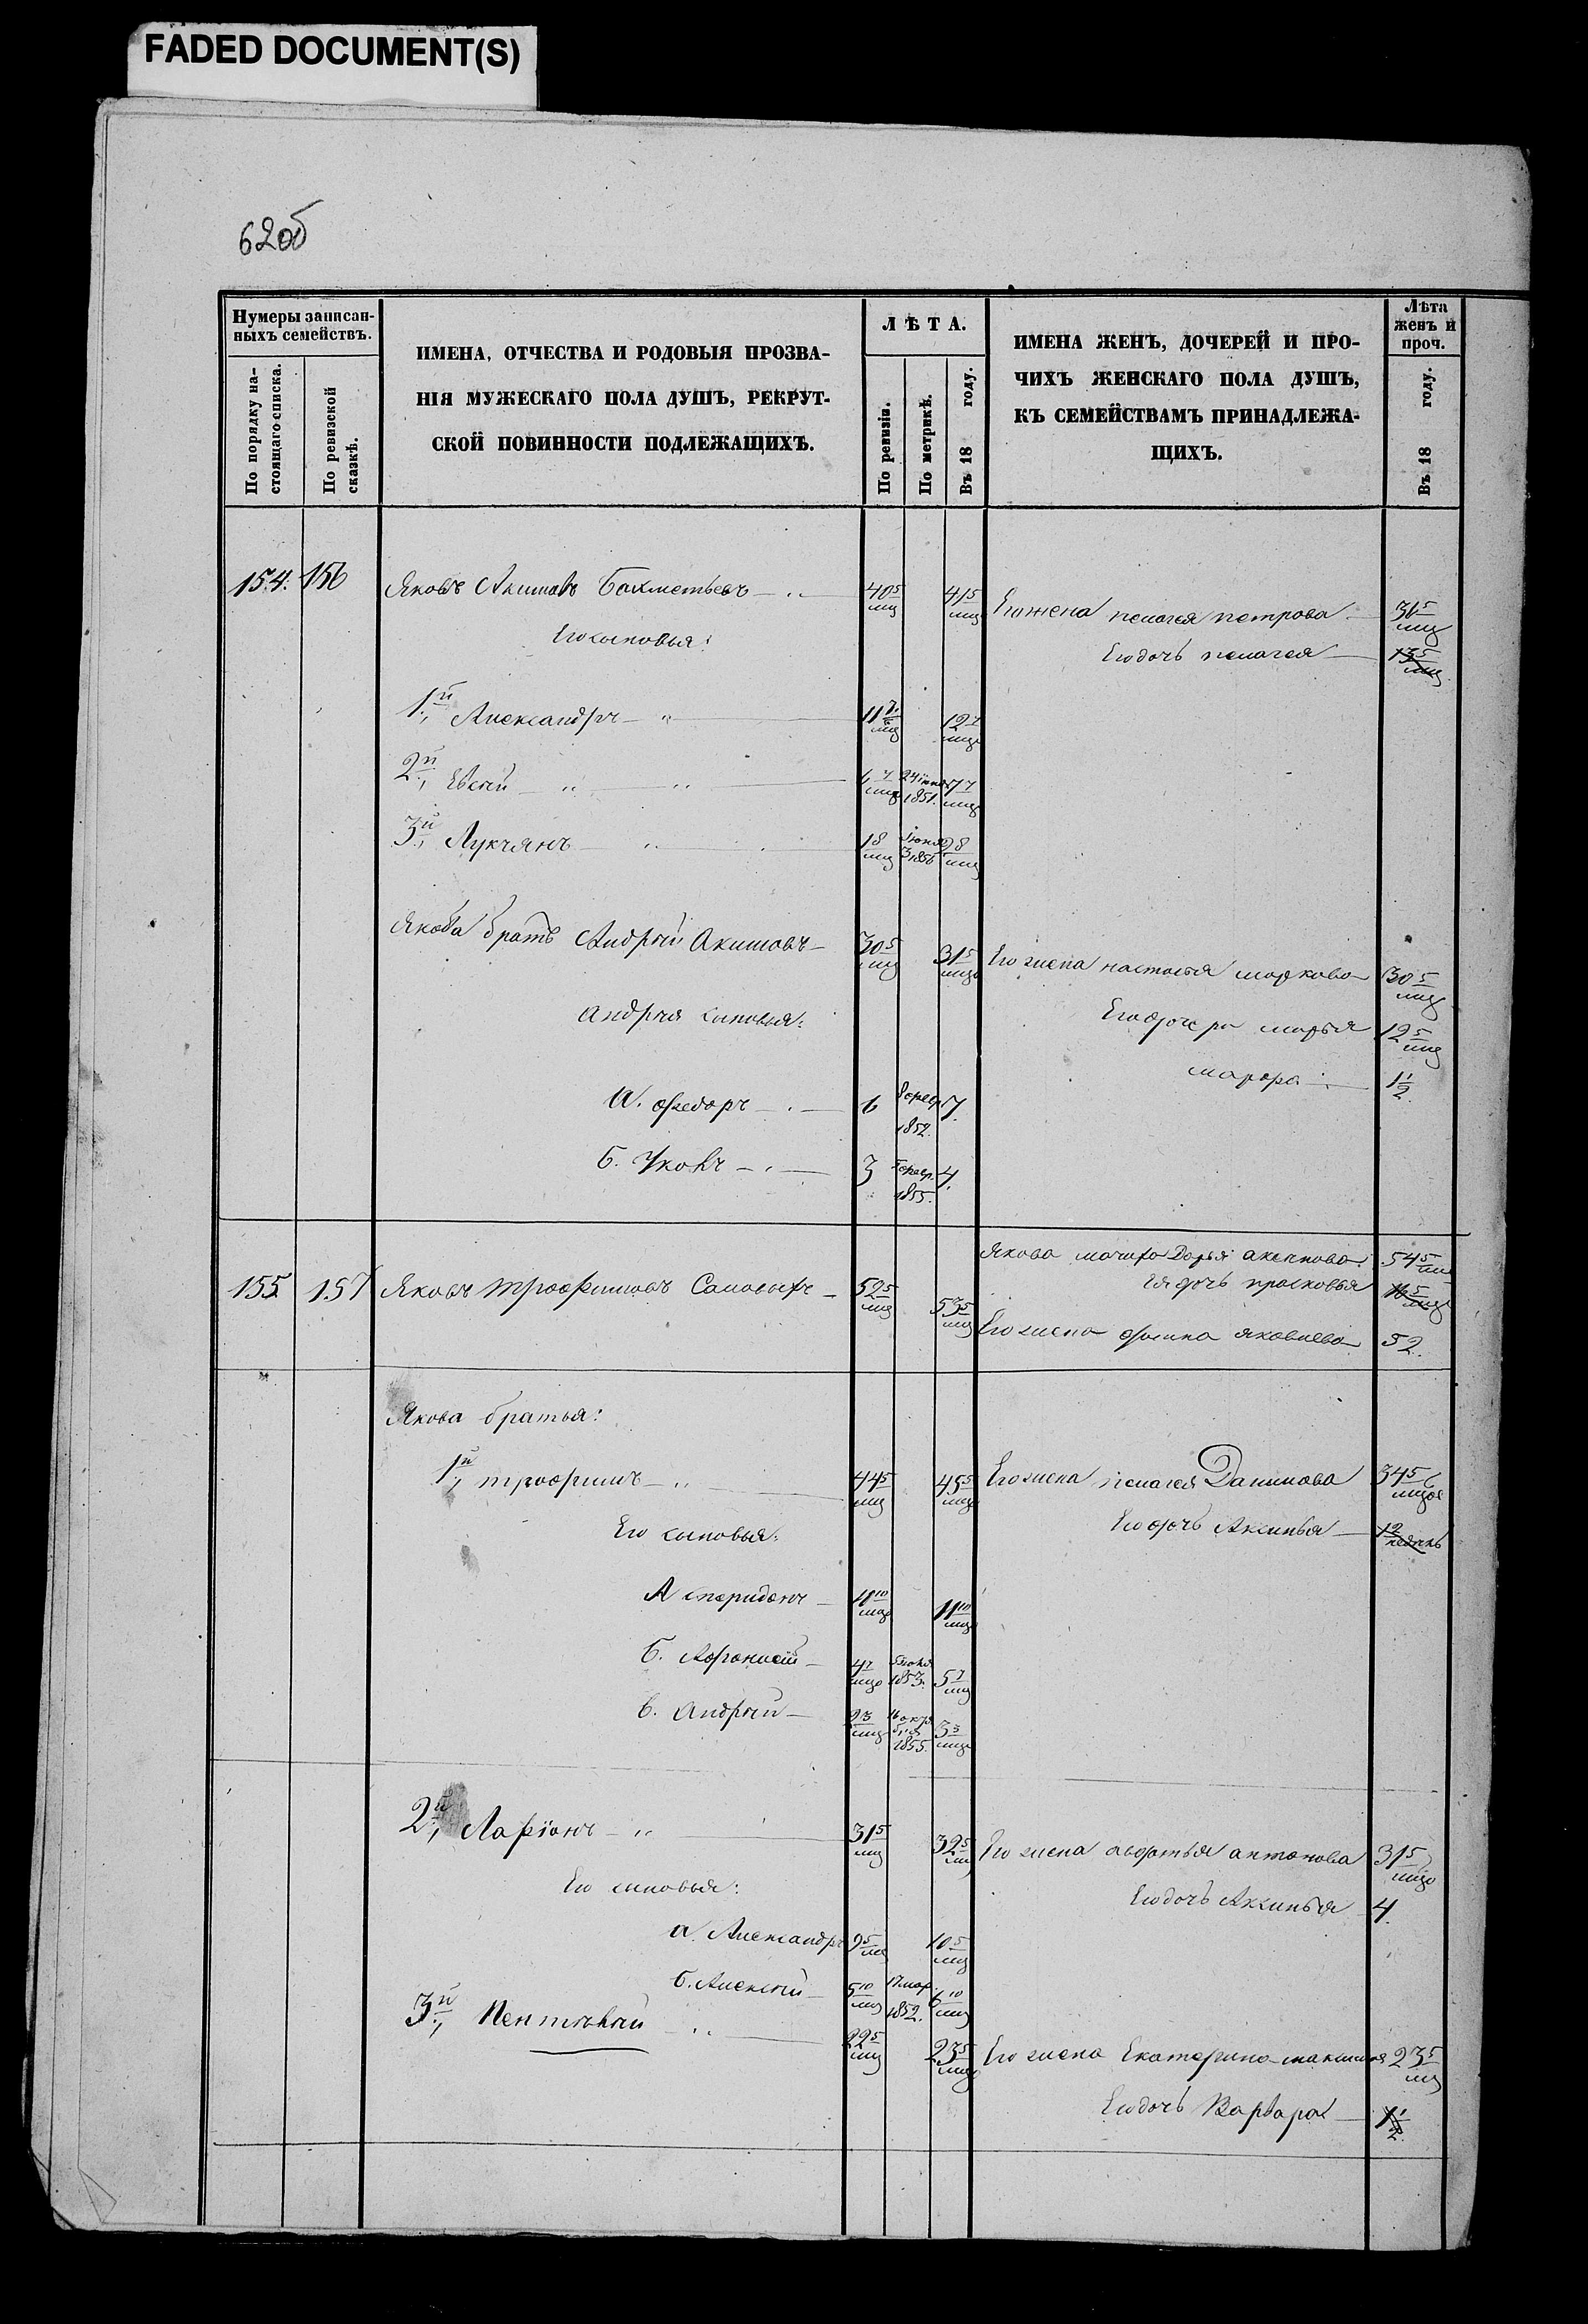 FADED DOCUMENT(S)
62об
Нумеры записан-
ныхъ семействъ.
По порядку на-
стоящаго списка.
По ревизской
сказкѣ.
ИМЕНА, ОТЧЕСТВА И РОДОВЫЯ ПРОЗВА-
НІЯ МУЖЕСКАГО ПОЛА ДУШЪ, РЕКРУТ-
СКОЙ ПОВИННОСТИ ПОДЛЕЖАЩИХЪ.
ЛѢТА.
По ревизіи.
По метрикѣ.
Въ 18 году.
ИМЕНА ЖЕНЪ, ДОЧЕРЕЙ И ПРО-
ЧИХЪ ЖЕНСКАГО ПОЛА ДУШЪ,
КЪ СЕМЕЙСТВАМЪ ПРИНАДЛЕЖА-
ЩИХЪ.
Лѣта
женъ и
проч.
Въ 18 году.
154. 156 Яковъ Акимовъ Бахметьевъ 40 5/мц 41 5/мц Его жена пелагея петрова 31 5/мц
Его сыновья:
Его дочь пелагея 13 5/мц
1й, Александръ 11 7/мц 12 7/мц
2й, Евсей 6 7/мц 1851. 7 7/мц
3й, Лукчянъ 1 8/мц 3 1856 2 8/мц
Якова братъ Андрѣй Акимовъ 30 5/мц 31 5/мц Его жена настасья маркова 30 5/мц
Андрѣя сыновья:
Его дочери марья 12 5/мц
1 1/2.
а. федоръ 6 8 февр 1852. 7.
б. Яковъ 3 февр. 1855. 4.
Якова мачиха Дарья 54 5/мц
155. 157 Яковъ трофимовъ 52 5/мц 53 5/мц
Ея дочь прасковья 16 5/мц
Его жена яковлева 52.
Якова братья:
1й, трофимъ 44 5/мц 45 5/мц Его жена пелагея Данилова 34 5/мцов
Его сыновья:
Его дочь Аксинья 12 недель
А спиридонъ 11 10/мцо 11 10/мц
б. Афонасий 4 7/мцо 1853. 5 7/мц
в. Андрѣй 2 3/мц 16 октября 1855. 3 3/мц
2й, Ларіонъ 31 5/мц 32 5/мц Его жена авдотья антонова 31 5/мцо
Его сыновья:
Его дочь Аксинья 4.
а. Александръ 9 5/мц 10 5/мц
б. Алексѣй 5 10/мц 17 мар. 1852. 6 10/мц
3й, 22 5/мц 23 5/мц Его жена Екатерина 23 5/мц
Его дочь Варвара 1 1/2.